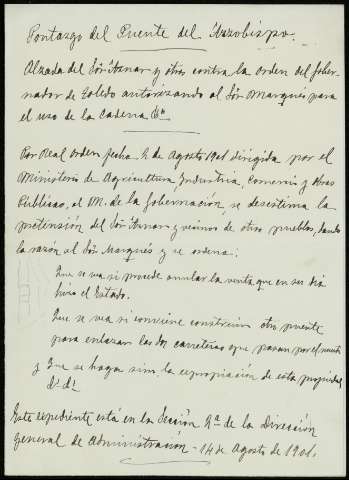 Pontazgo del Puente del Arzobispo.
Alzada del Sör Aznar y otros contra la orden del Gober-
nador de Toledo autorizando al Sör Marqués para
el uso de la cadena &ª
Por Real orden fecha 2 de Agosto 1901 dirigida por el
Ministerio de Agricultura, Industria, Comercio y Obras
Públicas, al M. de la Gobernación, se desestima la
pretensión del Sör Aznar y vecinos de otros pueblos, dando
la razón al Sör Marqués y se ordena:
Que se vea si procede anular la venta que en su dia
hizo el Estado.
Que se vea si conviene construir otro puente
para enlazar las dos carreteras que pasan por el
y Que se haga sinó la expropiación de esta propiedad
Este expediente está en la Sección 2ª de la Dirección
General de Administración - 14 de Agosto de 1901.